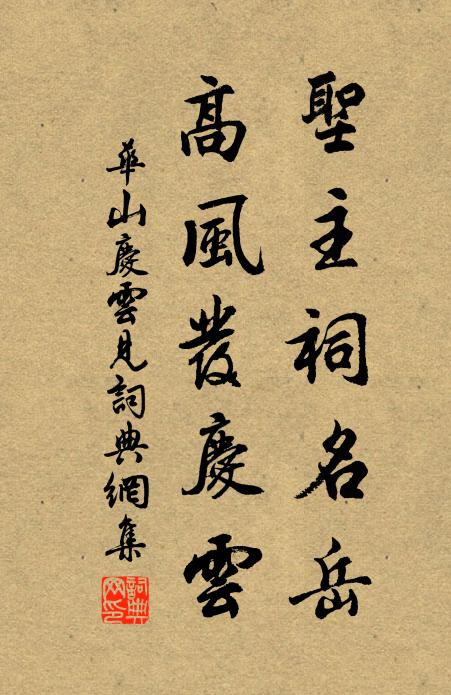 聖主祠名岳
高風發慶雲
華山慶雲見詞典網集
詞典网印